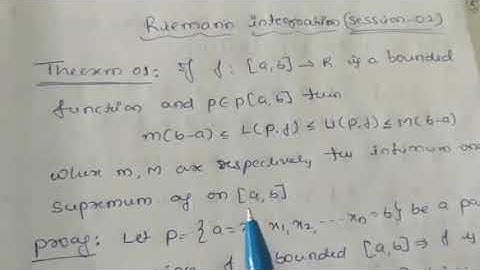 Riemann integration (session-02)
Theorem 01: If f: [a,b] → R is a bounded
function and P∈P[a,b] then
m(b-a) ≤ L(P,f) ≤ U(P,f) ≤ M(b-a)
where m, M are respectively the infimum and
supremum of on [a,b]
proof: Let P = {a = x₁, x₂, ... xₙ = b} be a
bounded [a,b] ⇒ f is